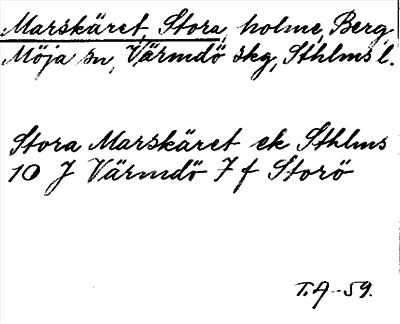 Marskäret, Stora, holme, Berg,
Möja sn, Värmdö skg, Sthlms l.
Stora Marskäret ek Sthlms
10 J Värmdö 7 f Storö
T.A-59.